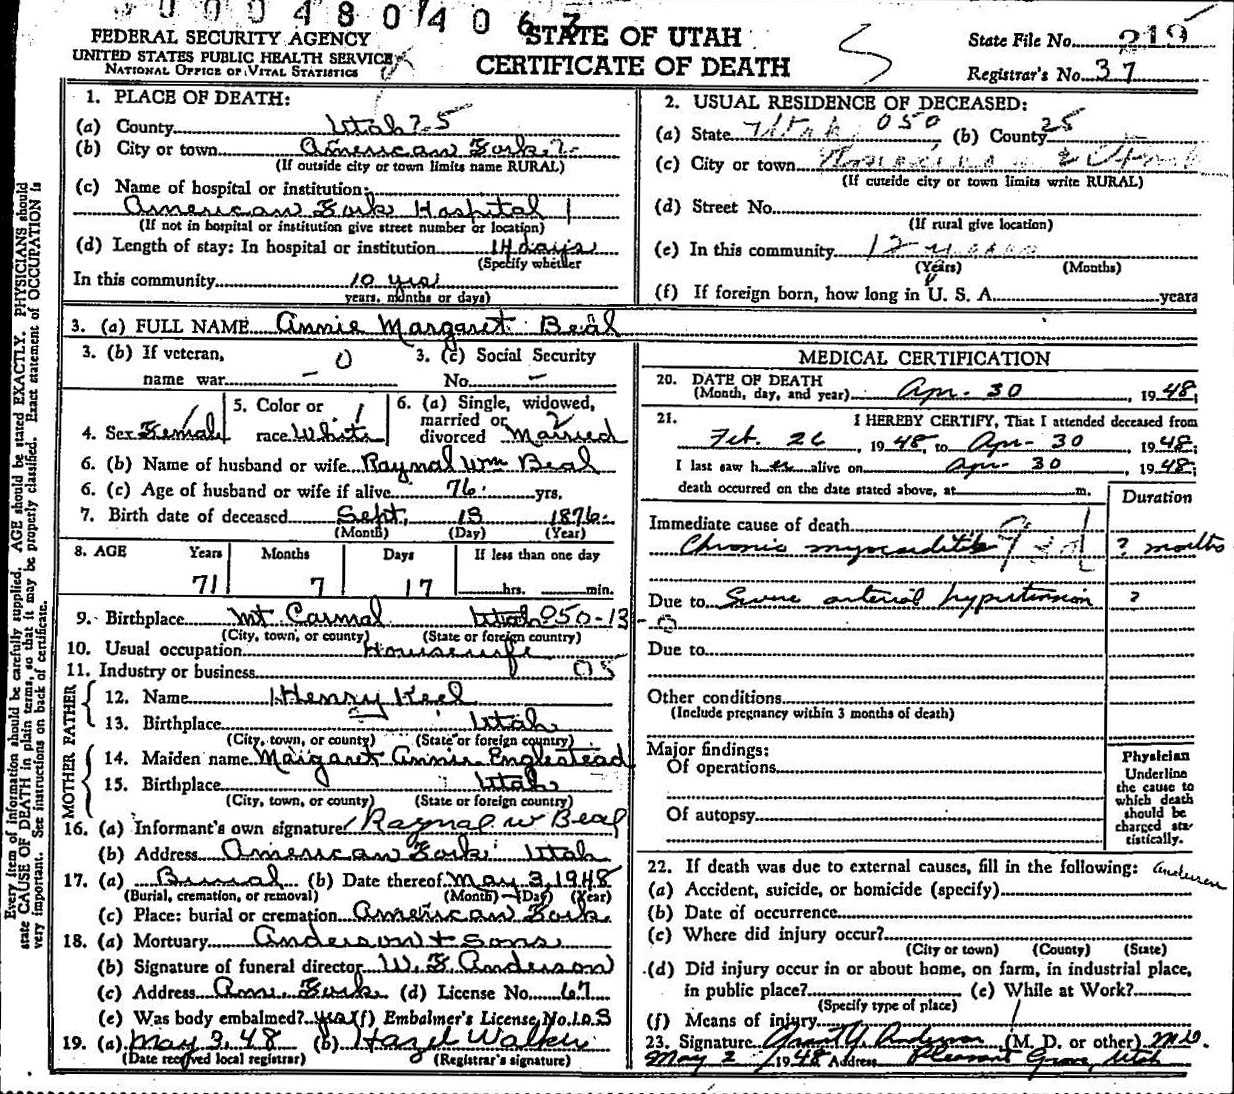 0 0 0 4 8 0 4 0 6 7
FEDERAL SECURITY AGENCY
UNITED STATES PUBLIC HEALTH SERVICE
NATIONAL OFFICE OF VITAL STATISTICS
STATE OF UTAH
CERTIFICATE OF DEATH
State File No. 219
Registrar's No. 37
Every item of information should be carefully supplied. AGE should be stated EXACTLY. PHYSICIANS should
state CAUSE OF DEATH in plain terms, so that it may be properly classified. Exact statement of OCCUPATION is
very important. See instructions on back of certificate.
1. PLACE OF DEATH:
(a) County Utah 25
(b) City or town American Fork
(If outside city or town limits name RURAL)
(c) Name of hospital or institution:
American Fork Hospital 1
(If not in hospital or institution give street number or location)
(d) Length of stay: In hospital or institution 14 days
(Specify whether
In this community 10 yrs
years, months or days)
2. USUAL RESIDENCE OF DECEASED:
(a) State Utah 050 (b) County 25
(c) City or town American Fork
(If outside city or town limits write RURAL)
(d) Street No.
(If rural give location)
(e) In this community 12 years
(Years) (Months)
(f) If foreign born, how long in U. S. A. years
3. (a) FULL NAME Annie Margaret Beal
3. (b) If veteran,
name war - 0
3. (c) Social Security
No. -
4. Sex Female
5. Color or
race White
6. (a) Single, widowed,
married or
divorced Married
6. (b) Name of husband or wife Raynal Wm Beal
6. (c) Age of husband or wife if alive 76 yrs.
7. Birth date of deceased Sept. 13 1876
(Month) (Day) (Year)
8. AGE Years Months Days If less than one day
71 7 17 hrs. min.
9. Birthplace Mt Carmal Utah 050-13
(City, town, or county) (State or foreign country)
10. Usual occupation Housewife
11. Industry or business 05
FATHER
12. Name Henry Keel
13. Birthplace Utah
(City, town, or county) (State or foreign country)
MOTHER
14. Maiden name Margaret Annie Englestead
15. Birthplace Utah
(City, town, or county) (State or foreign country)
16. (a) Informant's own signature Raynal W Beal
(b) Address American Fork Utah
17. (a) Burial (b) Date thereof May 3, 1948
(Burial, cremation, or removal) (Month) (Day) (Year)
(c) Place: burial or cremation American Fork
18. (a) Mortuary Anderson & Sons
(b) Signature of funeral director W. F. Anderson
(c) Address Am. Fork (d) License No. 67
(e) Was body embalmed? yes (f) Embalmer's License No. 103
19. (a) May 3, 48 (b) Hazel Walker
(Date received local registrar) (Registrar's signature)
MEDICAL CERTIFICATION
20. DATE OF DEATH
(Month, day, and year) Apr. 30, 1948;
21. I HEREBY CERTIFY, That I attended deceased from
Feb. 26, 1948, to Apr. 30 1948;
I last saw her alive on Apr. 30, 1948;
death occurred on the date stated above, at m.
Duration
Immediate cause of death
Chronic myocarditis ? months
Due to Severe arterial hypertension ?
Due to
Other conditions
(Include pregnancy within 3 months of death)
Major findings:
Of operations
Of autopsy
Physician
Underline
the cause to
which death
should be
charged sta-
tistically.
22. If death was due to external causes, fill in the following: Andersen
(a) Accident, suicide, or homicide (specify)
(b) Date of occurrence
(c) Where did injury occur?
(City or town) (County) (State)
(d) Did injury occur in or about home, on farm, in industrial place,
in public place? (e) While at Work?
(Specify type of place)
(f) Means of injury
23. Signature Grant Y. Anderson (M. D. or other) M.D.
May 2 1948 Address Pleasant Grove, Utah